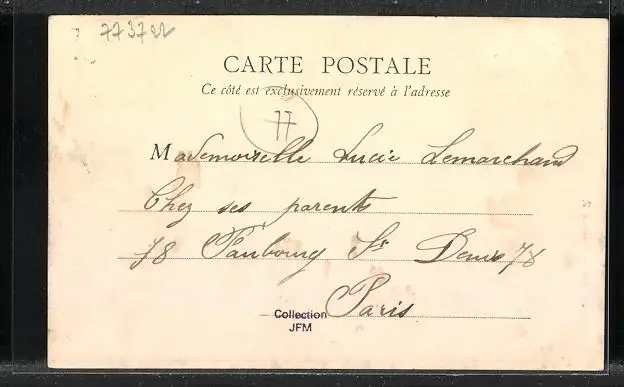 773722
CARTE POSTALE
Ce côté est exclusivement réservé à l'adresse
77
Mademoiselle Lucie Lemarchand
Chez ses parents
78 Faubourg St Denis 78
Paris
Collection
JFM